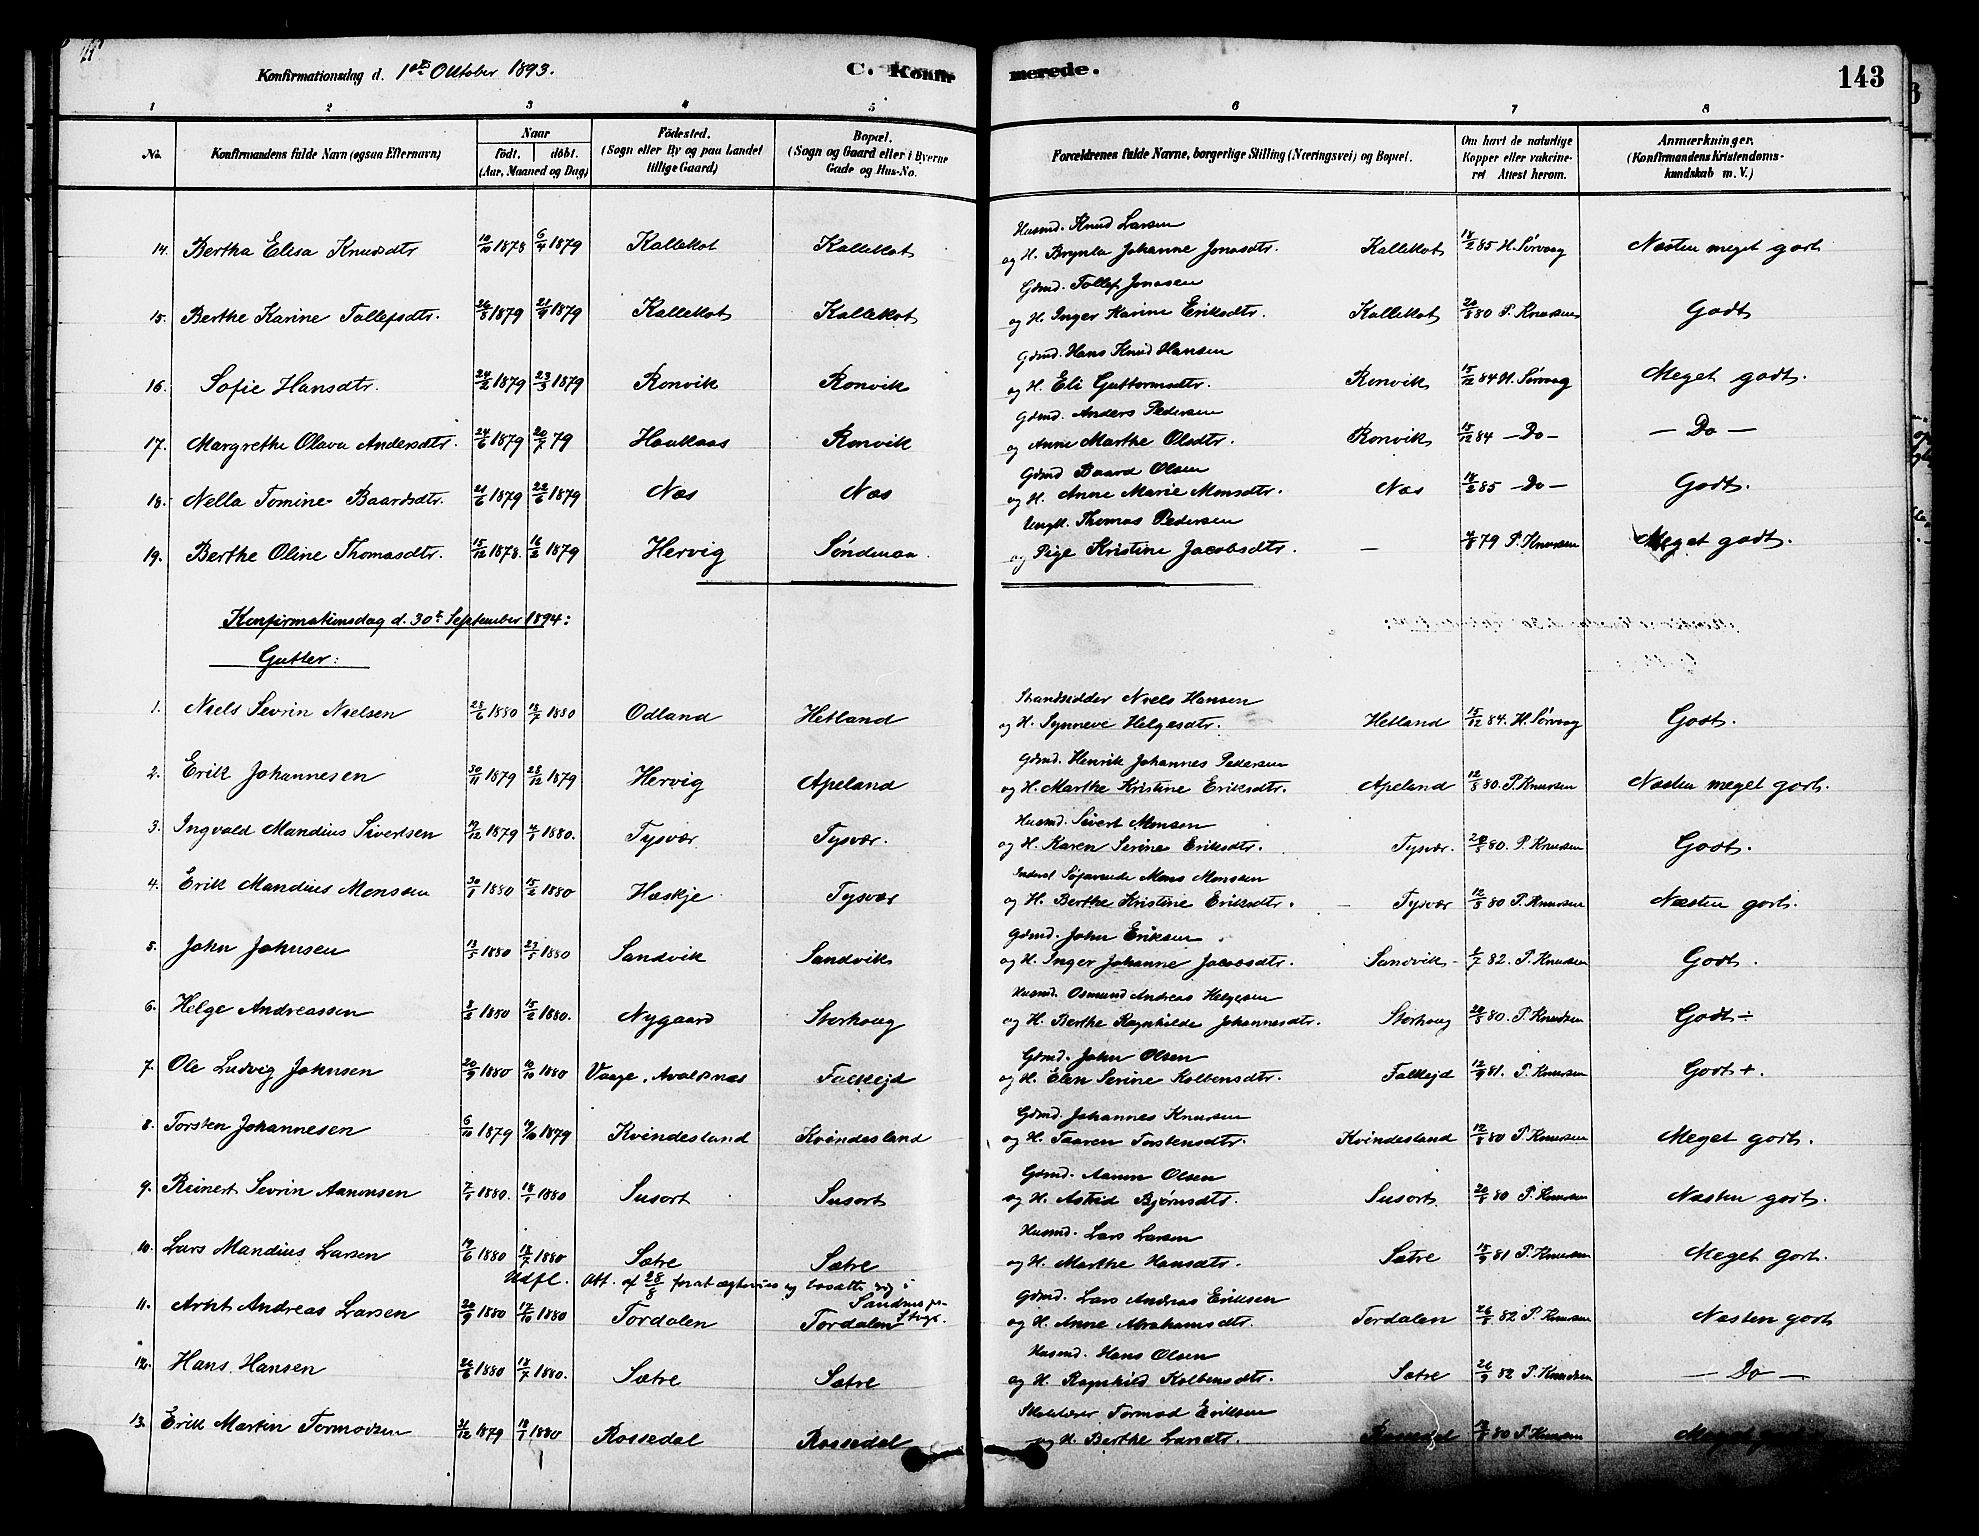 Konfirmationsdag d. 1ste Oktober 1893. C. Konfir merede. 143
1 2 3 4 5 6 7 8
No. Konfirmandens fulde Navn (ogsaa Efternavn) Naar födt. döbt. (Aar, Maaned og Dag) Födested. (Sogn eller By og paa Landet tillige Gaard) Bopæl. (Sogn og Gaard eller i Byerne Gade og Hus-No. Forældrenes fulde Navne, borgerlige Stilling (Næringsvei) og Bopæl. Om havt de naturlige Kopper eller vakcineret Attest herom. Anmærkninger. (Konfirmandens Kristendomskundskab m. V.)
Husmd. Knud Larsen
14. Bertha Elisa Knudsdtr 10/10 1878 6/4 1879 Kallekot Kallekot og H. Brynla Johanne Jonasdtr. Kallekot 18/2 85 H. Sørvaag Næsten meget godt
Gdmd. Tollef Jonasen
15. Berthe Karine Tollefsdtr. 26/8 1879 21/9 1879 Kallekot Kallekot og H. Inger Karine Eriksdtr. Kallekot 20/8 80 P. Knudsen Godt
Gdmd. Hans Knud Hansen
16. Sofie Hansdtr. 24/2 1879 23/3 1879 Ronvik Ronvik og H. Eli Guttormsdtr. Ronvik 15/12 84 H. Sørvaag Meget godt.
Gdmd. Anders Pedersen
17. Margrethe Olava Andersdtr. 24/6 1879 20/7 79 Haukaas Ronvik og Anne Marthe Olsdtr. Ronvik 15/12 84 — Do — — Do —
Gdmd Baard Olsen
18. Nella Tomine Baardsdtr. 21/6 1879 22/6 1879 Næs Næs og H. Anne Marie Monsdtr. Næs 18/2 85 — Do — Godt.
Ungk. Thomas Pedersen
19. Berthe Oline Thomasdtr. 15/12 1878. 16/2 1879 Hervig Søndenaa. og Pige Kristine Jacobsdtr. — 4/8 79 P. Knudsen Meget godt.
Konfirmationsdag d. 30te September 1894:
Gutter:
Strandsidder Niels Hansen
1. Niels Sevrin Nielsen 23/6 1880 18/7 1880 Odland Hetland og H. Synneve Helgesdtr. Hetland 15/12 84. H. Sørvaag Godt.
Gdmd. Henrik Johannes Pedersen
2. Erik Johannesen 30/11 1879 28/12 1879 Hervig Apeland og H. Marthe Kristine Eriksdtr. Apeland 12/8 80. P. Knudsen Næsten meget godt.
Husmd. Sivert Monsen
3. Ingvald Mandius Sivertsen 19/12 1879 4/1 1880. Tysvær Tysvær. og H. Karen Serine Eriksdtr. Tysvær. 20/8 80. P. Knudsen Godt.
Inderst Søfarende Mons Monsen
4. Erik Mandius Monsen 30/1 1880 15/2 1880 Hæskje Tysvær og H. Berthe Kristine Eriksdtr. — Tysvær 12/8 80 P. Knudsen Næsten godt.
Gdmd. John Eriksen
5. John Johnsen 13/5 1880 23/5 1880 Sandvik Sandvik og H. Inger Johanne Jacobsdtr. Sandvik 1/7 82. P. Knudsen Godt.
Husmd. Osmund Andreas Helgesen
6. Helge Andreassen 3/2 1880 15/2 1880. Nygaard Storhoug og H. Berthe Ragnhilde Johannesdtr. Storhoug 20/8 80. P. Knudsen Godt ÷
Gdmd. John Olsen
7. Ole Ludvig Johnsen 20/9 1880 10/10 1880 Vaage, Avaldsnæs Falkejd og H. Elen Serine Kolbensdtr. Falkejd 12/9 81. P. Knudsen Godt +.
Gdmd. Johannes Knudsen
8. Torsten Johannesen 6/10 1879 19/10 1879 Kvindesland Kvindesland og H. Taaren Torstensdtr. Kvindesland 12/8 80 P. Knudsen Meget godt.
Gdmd. Aanen Olsen
9. Reinert Sevrin Aanensen 7/1 1880. 18/1 1880 Susort Susort og H. Astrid Bjørnsdtr. Susort. 20/8 80 P. Knudsen Næsten godt.
Husmd. Lars Larsen
10. Lars Mandius Larsen 19/6 1880 18/7 1880 Sætre Sætre og H. Marthe Hansdtr. Sætre 15/9 81 P. Knudsen Meget godt.
Udfl. Att. af 28/8 for at ægtevies og bosætte sig i Sandnes
Gdmd. Lars Andreas Eriksen
11. Andreas Larsen 20/9 1880 17/10 1880 Tordalen Tordalen og H. Anne Abrahamsdtr. Tordalen 26/8 82 P. Knudsen Næsten godt
Husmd. Hans Olsen
12. Hans Hansen 26/6 1880 18/7 1880. Sætre Sætre og H. Ragnhild Kolbensdtr. Sætre 26/9 82 P. Knudsen — Do —
Skolelærer Tormod Eriksen
13. Erik Martin Tormodsen 31/12 1879 18/1 1880 Rossedal Rossedal og H. Berthe Larsdtr. Rossedal 80 P. Knudsen Meget godt